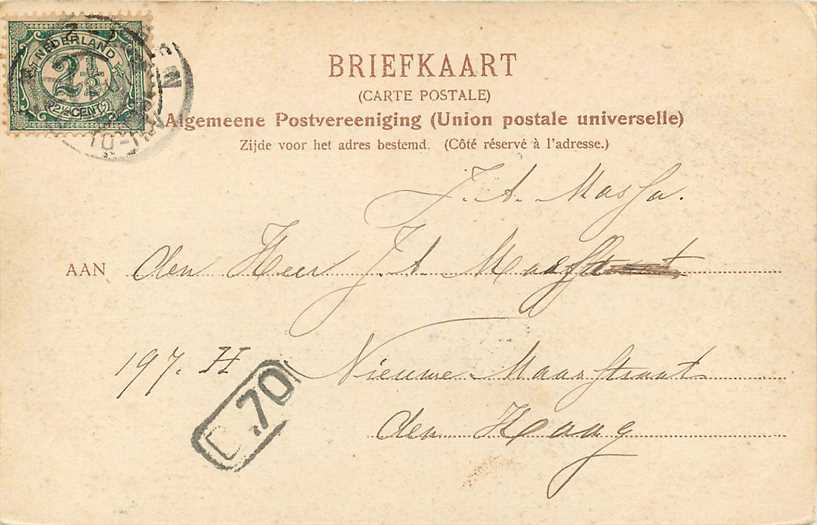 NEDERLAND
2½
2½ CENT 2½
BRIEFKAART
(CARTE POSTALE)
Algemeene Postvereeniging (Union postale universelle)
Zijde voor het adres bestemd. (Côté réservé à l'adresse.)
J. A. Massa.
AAN den Heer J. A.
197. H Nieuwe Maasstraat
den Haag
D.70